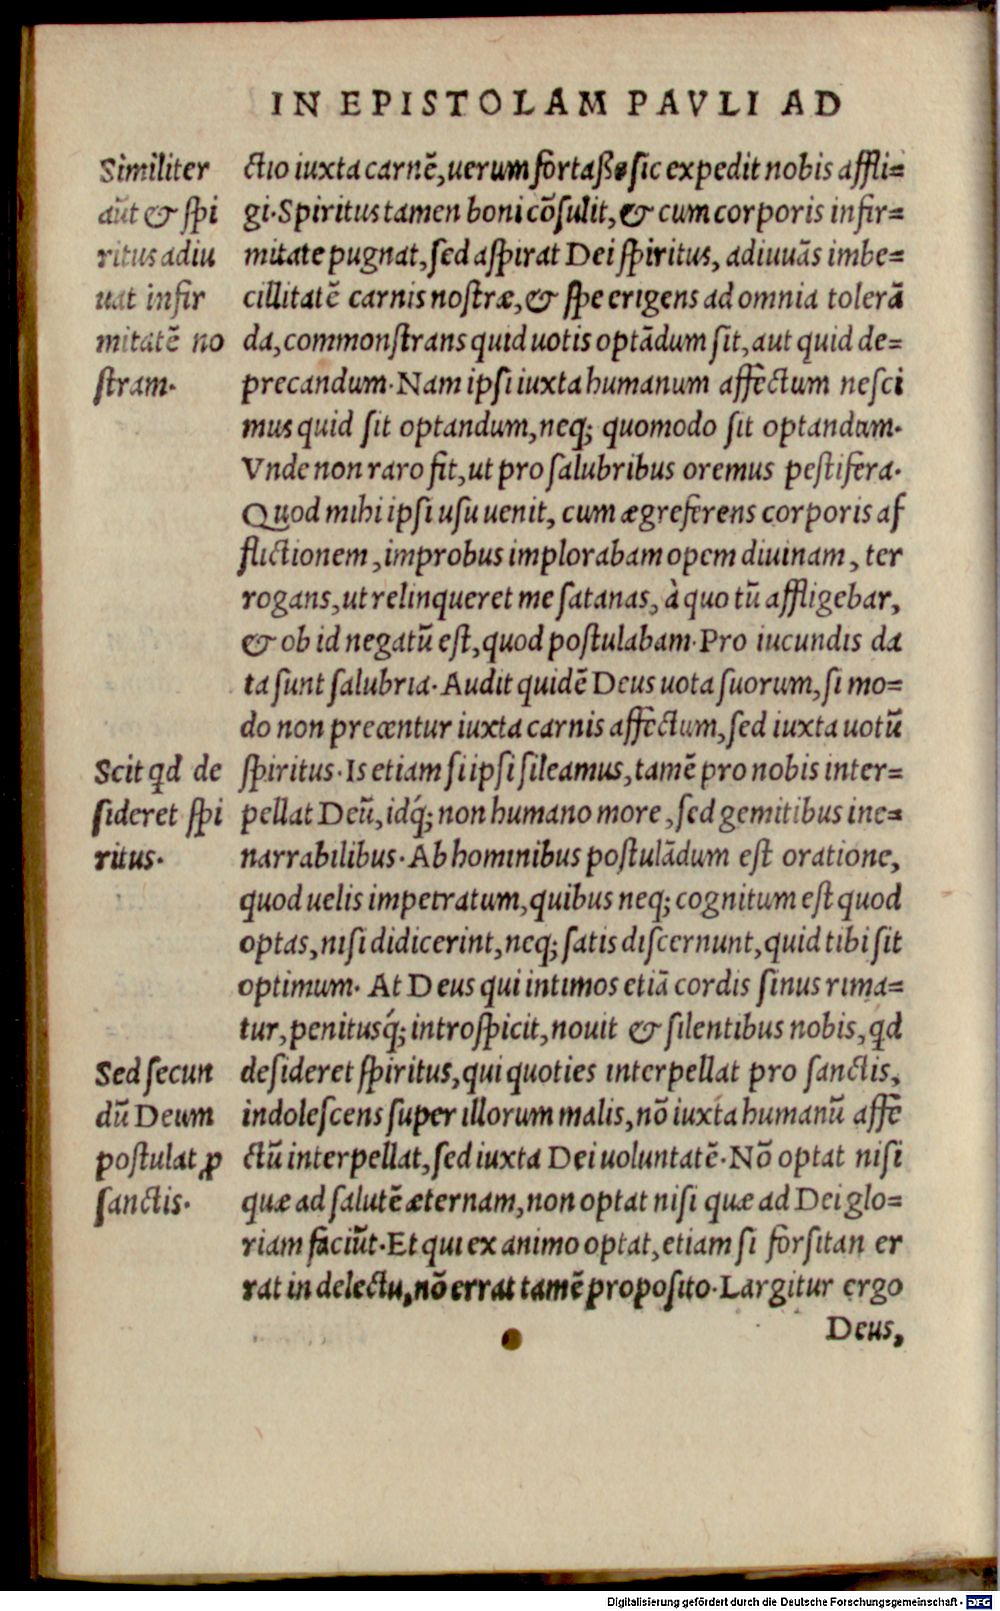 IN EPISTOLAM PAVLI AD
Similiter
aūt & ſpi
ritus adiu
uat infir
mitatē no
ſtram.
ctio iuxta carnē, uerum fortaſſe ſic expedit nobis affli=
gi. Spiritus tamen boni cōſulit, & cum corporis infir=
mitate pugnat, ſed aſpirat Dei ſpiritus, adiuuās imbe=
cillitatē carnis noſtræ, & ſpe erigens ad omnia tolerā
da, commonſtrans quid uotis optādum ſit, aut quid de=
precandum. Nam ipſi iuxta humanum affectum neſci
mus quid ſit optandum, neq; quomodo ſit optandum.
Vnde non raro fit, ut pro ſalubribus oremus peſtifera.
Quod mihi ipſi uſu uenit, cum ægre ferens corporis af
flictionem, improbus implorabam opem diuinam, ter
rogans, ut relinqueret me ſatanas, à quo tū affligebar,
& ob id negatū eſt, quod poſtulabam. Pro iucundis da
ta ſunt ſalubria. Audit quidē Deus uota ſuorum, ſi mo=
do non precentur iuxta carnis affectum, ſed iuxta uotū
Scit qđ de
ſideret ſpi
ritus.
ſpiritus. Is etiam ſi ipſi ſileamus, tamē pro nobis inter=
pellat Deū, idq́; non humano more, ſed gemitibus ine=
narrabilibus. Ab hominibus poſtulādum eſt oratione,
quod uelis impetratum, quibus neq; cognitum eſt quod
optas, niſi didicerint, neq; ſatis diſcernunt, quid tibi ſit
optimum. At Deus qui intimos etiā cordis ſinus rima=
tur, penitusq́; introſpicit, nouit & ſilentibus nobis, qđ
Sed ſecun
dū Deum
poſtulat ꝓ
ſanctis.
deſideret ſpiritus, qui quoties interpellat pro ſanctis,
indoleſcens ſuper illorum malis, nō iuxta humanū affē
ctū interpellat, ſed iuxta Dei uoluntatē. Nō optat niſi
quæ ad ſalutē æternam, non optat niſi quæ ad Dei glo=
riam faciūt. Et qui ex animo optat, etiam ſi forſitan er
rat in delectu, nō errat tamē propoſito. Largitur ergo
Deus,
Digitalisierung gefördert durch die Deutsche Forschungsgemeinschaft - DFG